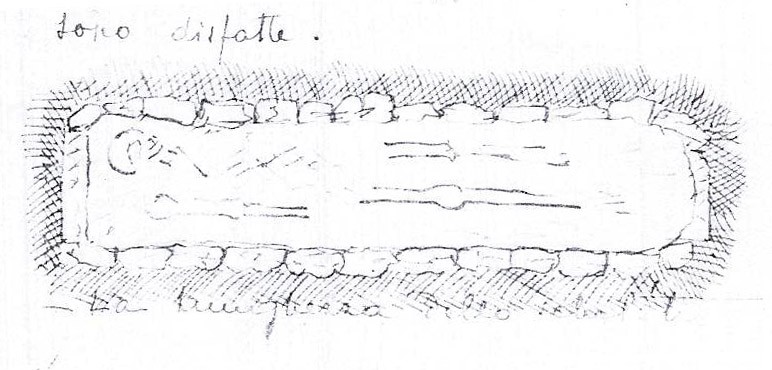 sono disfatte.
- La lunghezza dello